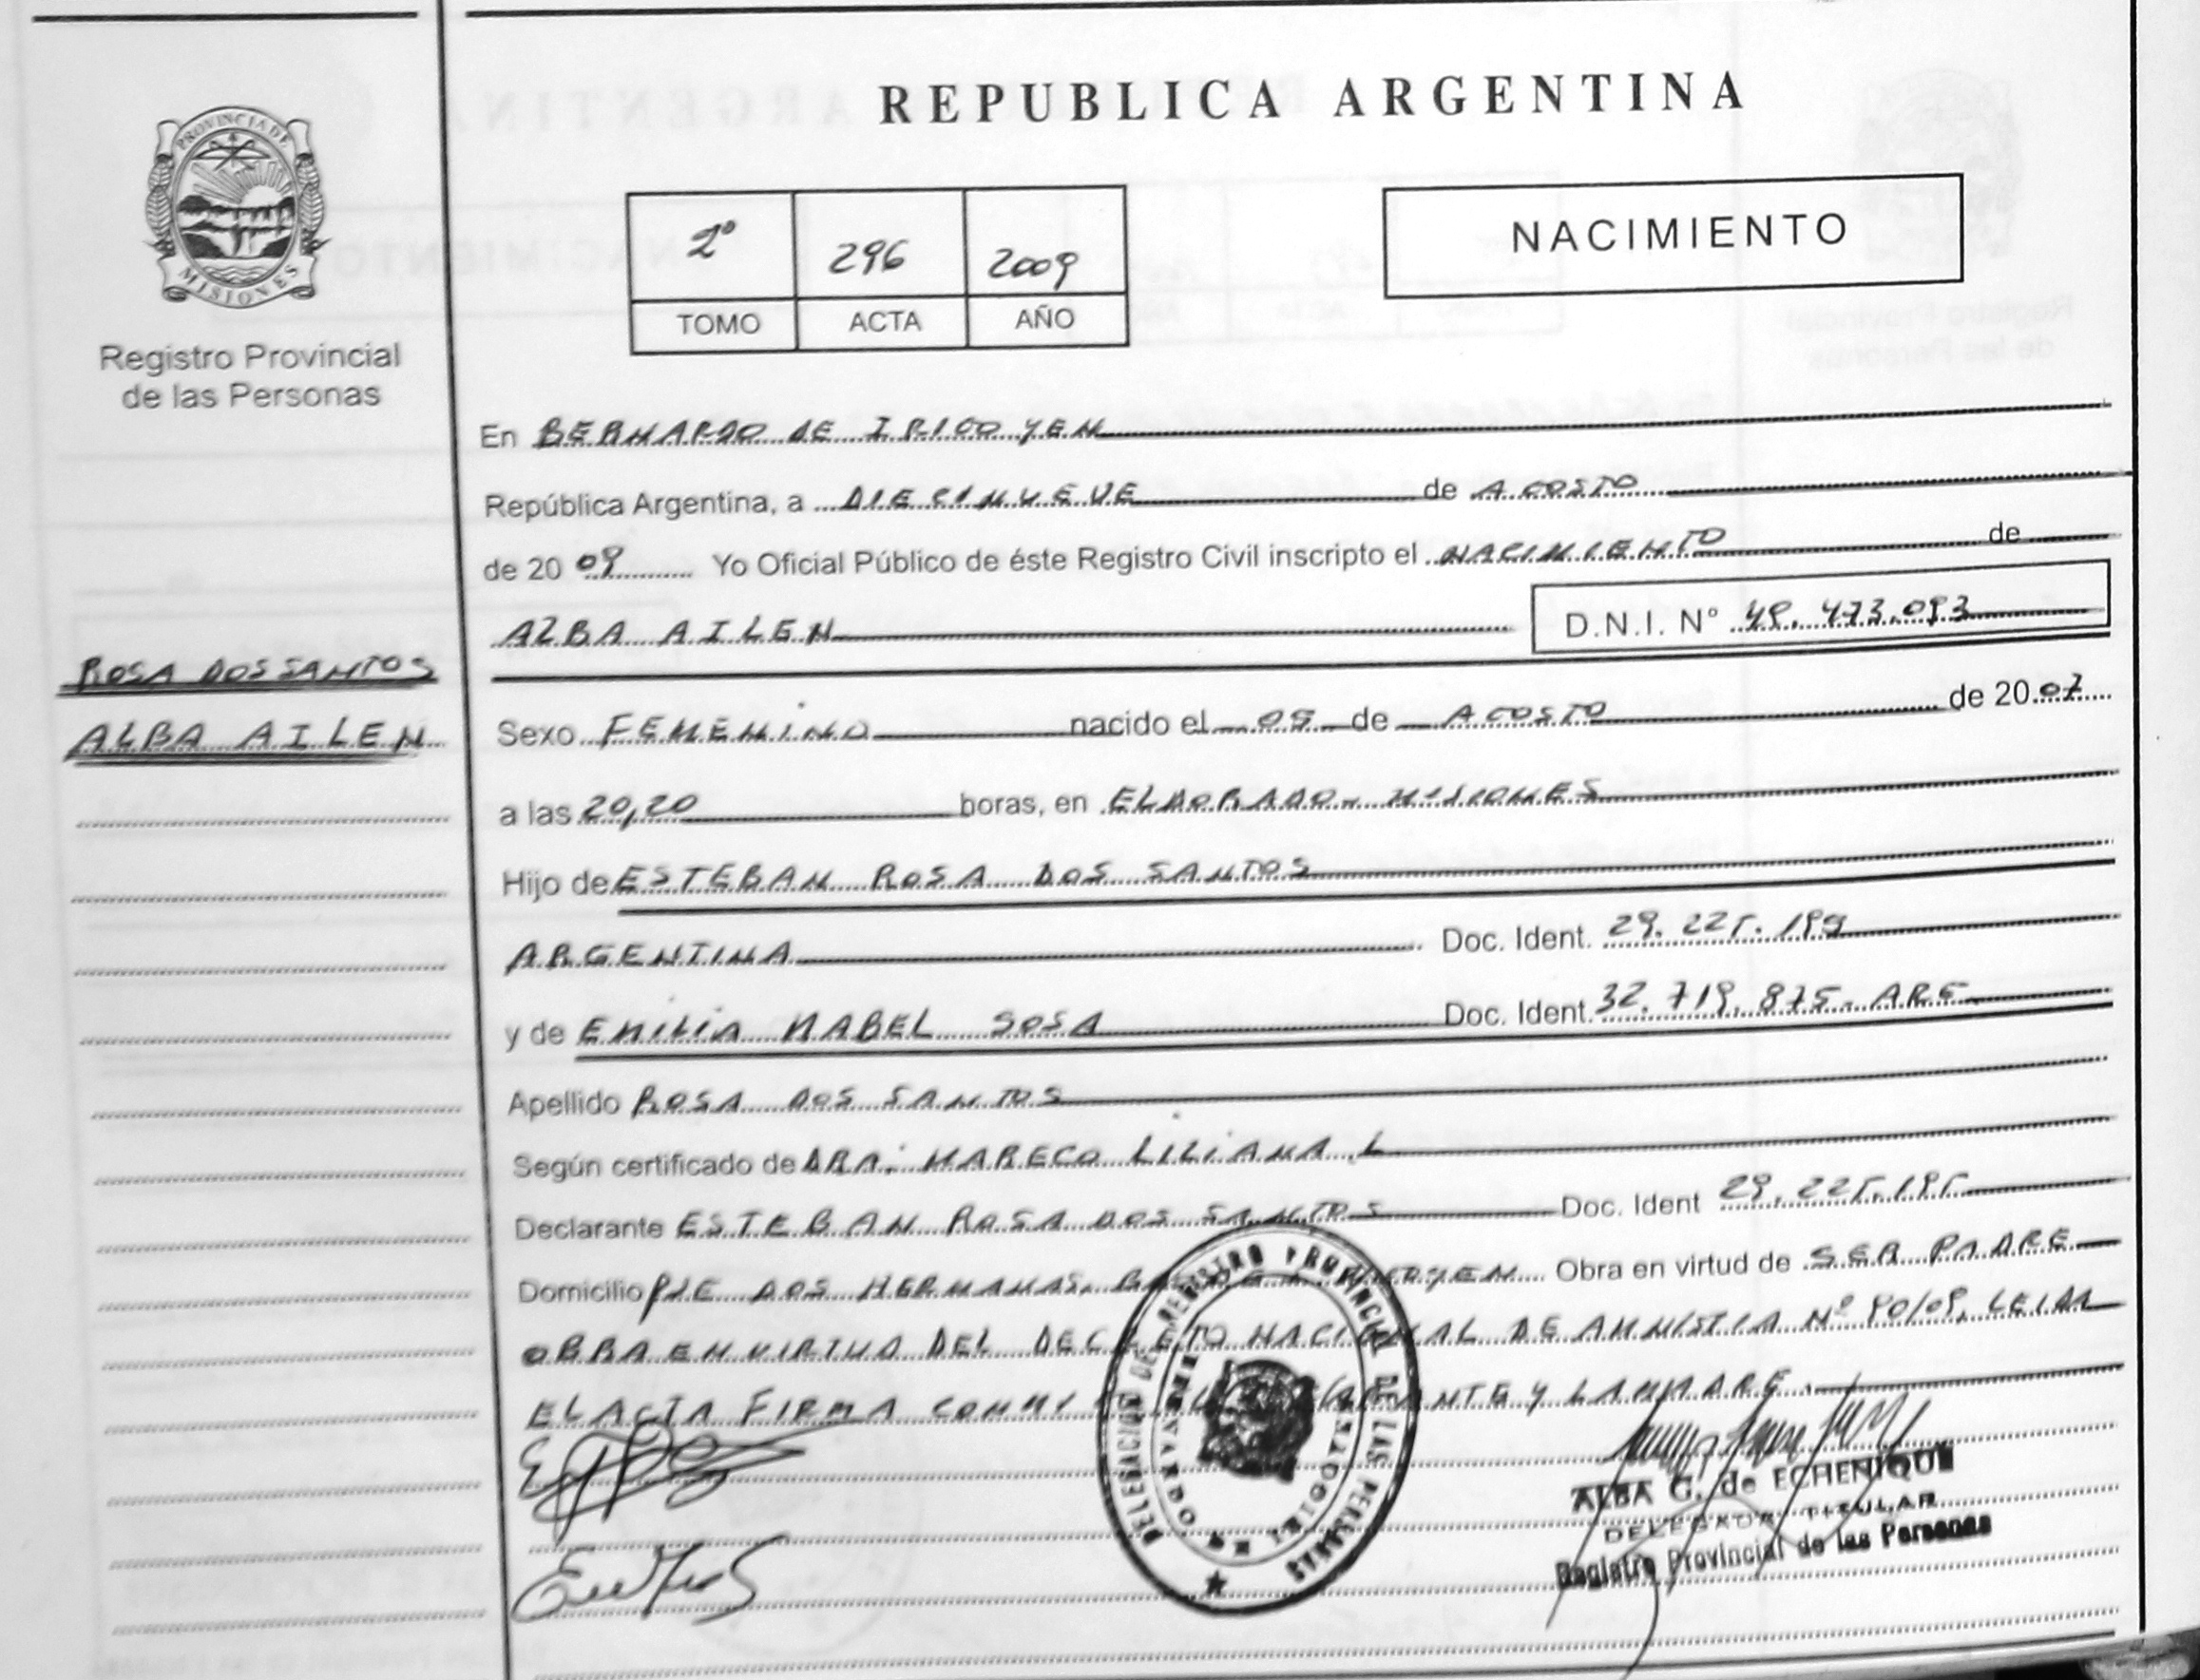 PROVINCIA DE
MISIONES
Registro Provincial
de las Personas
ROSA DOS SANTOS
ALBA AILEN
REPUBLICA ARGENTINA
2º 296 2009
TOMO ACTA AÑO
NACIMIENTO
En BERNARDO DE IRIGOYEN
República Argentina, a DIECINUEVE de AGOSTO
de 2009 Yo Oficial Público de éste Registro Civil inscripto el NACIMIENTO de
ALBA AILEN D.N.I. Nº 473.093
Sexo FEMENINO nacido el de AGOSTO de 2007
a las 20,20 horas, en ELDORADO - MISIONES
Hijo de ESTEBAN ROSA DOS SANTOS
ARGENTINA Doc. Ident. 29.225.
y de EMILIA MABEL SOSA Doc. Ident. 32.719.875- ARG
Apellido ROSA DOS SANTOS
Según certificado de DRA: MARECO LILIANA L
Declarante ESTEBAN ROSA DOS SANTOS Doc. Ident 29.225.
Domicilio PJE DOS HERMANAS. Obra en virtud de SER PADRE
OBRA EN VIRTUD DEL DECRETO NACIONAL DE AMNISTIA Nº 90/09, LEIDA
EL ACTA FIRMA CONMIGO
DELEGACION DE REGISTRO PROVINCIAL DE LAS PERSONAS
BERNARDO DE IRIGOYEN
ALBA G. de ECHENIQUE
DELEGADA TITULAR
Registro Provincial de las Personas